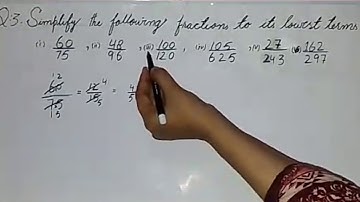 Q3. Simplify the following fractions to its lowest terms
(i) 60/75 , (ii) 48/96 , (iii) 100/120 , (iv) 105/625 , (v) 27/243 (vi) 162/297
12
60/75 = 12/15 = 4/5